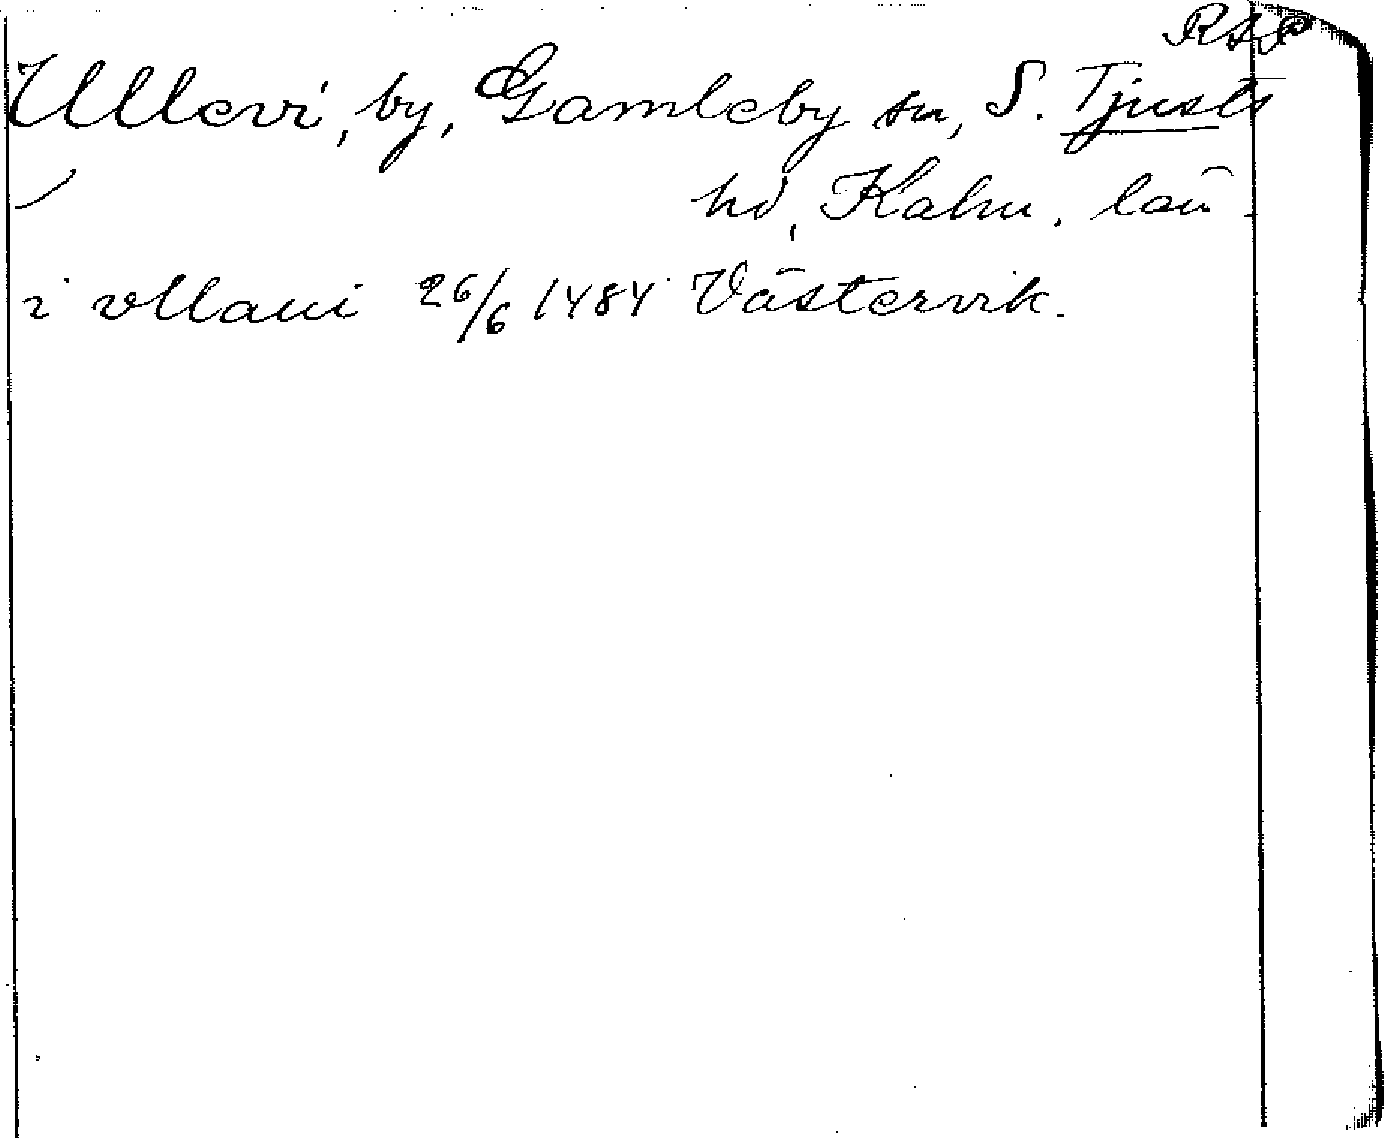 RAP
Ullevi, by, Gamleby sn, S. Tjusts
hd, Kalm. län.
i vllaui 26/6 1484 Västervik.